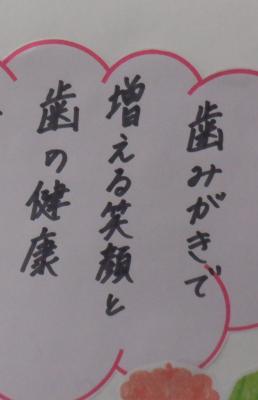 歯みがきで
増える笑顔と
歯の健康